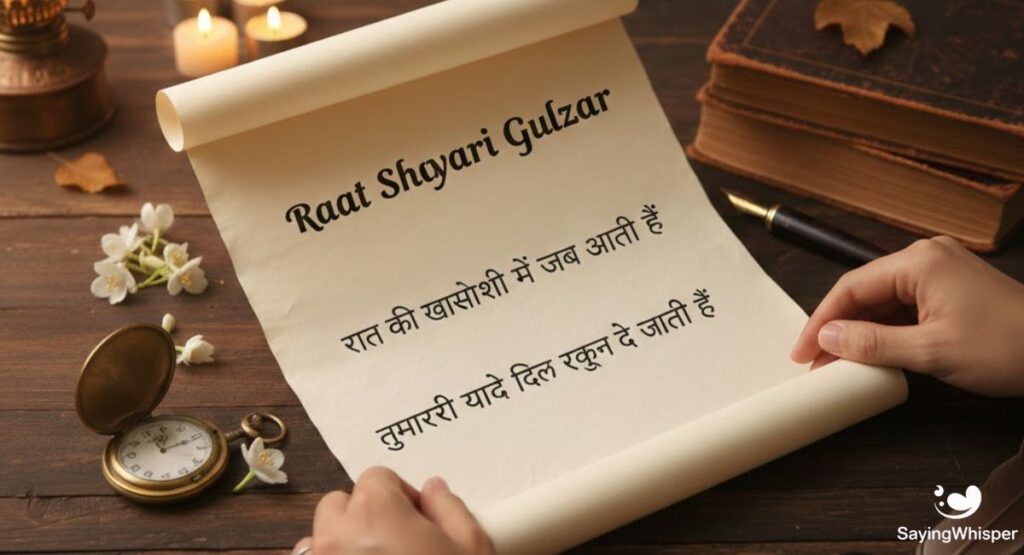 Raat Shayari Gulzar
रात की खासोशी में जब आती हैं
तुमाररी यादे दिल रकुन दे जाती हैं
SayingWhisper